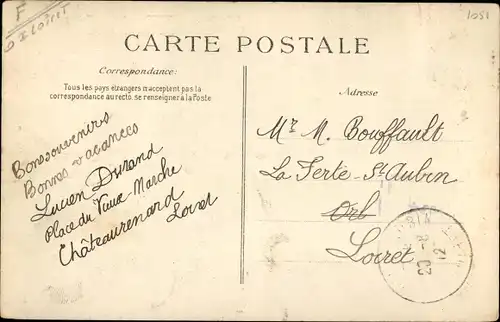 F
LOIRET
1051
CARTE POSTALE
Correspondance:
Tous les pays étrangers n'acceptent pas la
correspondance au recto. se renseigner à la Poste
Bons souvenirs
Bonnes vacances
Lucien Durand
Place du Vieux Marche
Châteaurenard
Loiret
Adresse
Mr M. Bouffault
La Ferte-St-Aubin
Loiret
20 -8
12